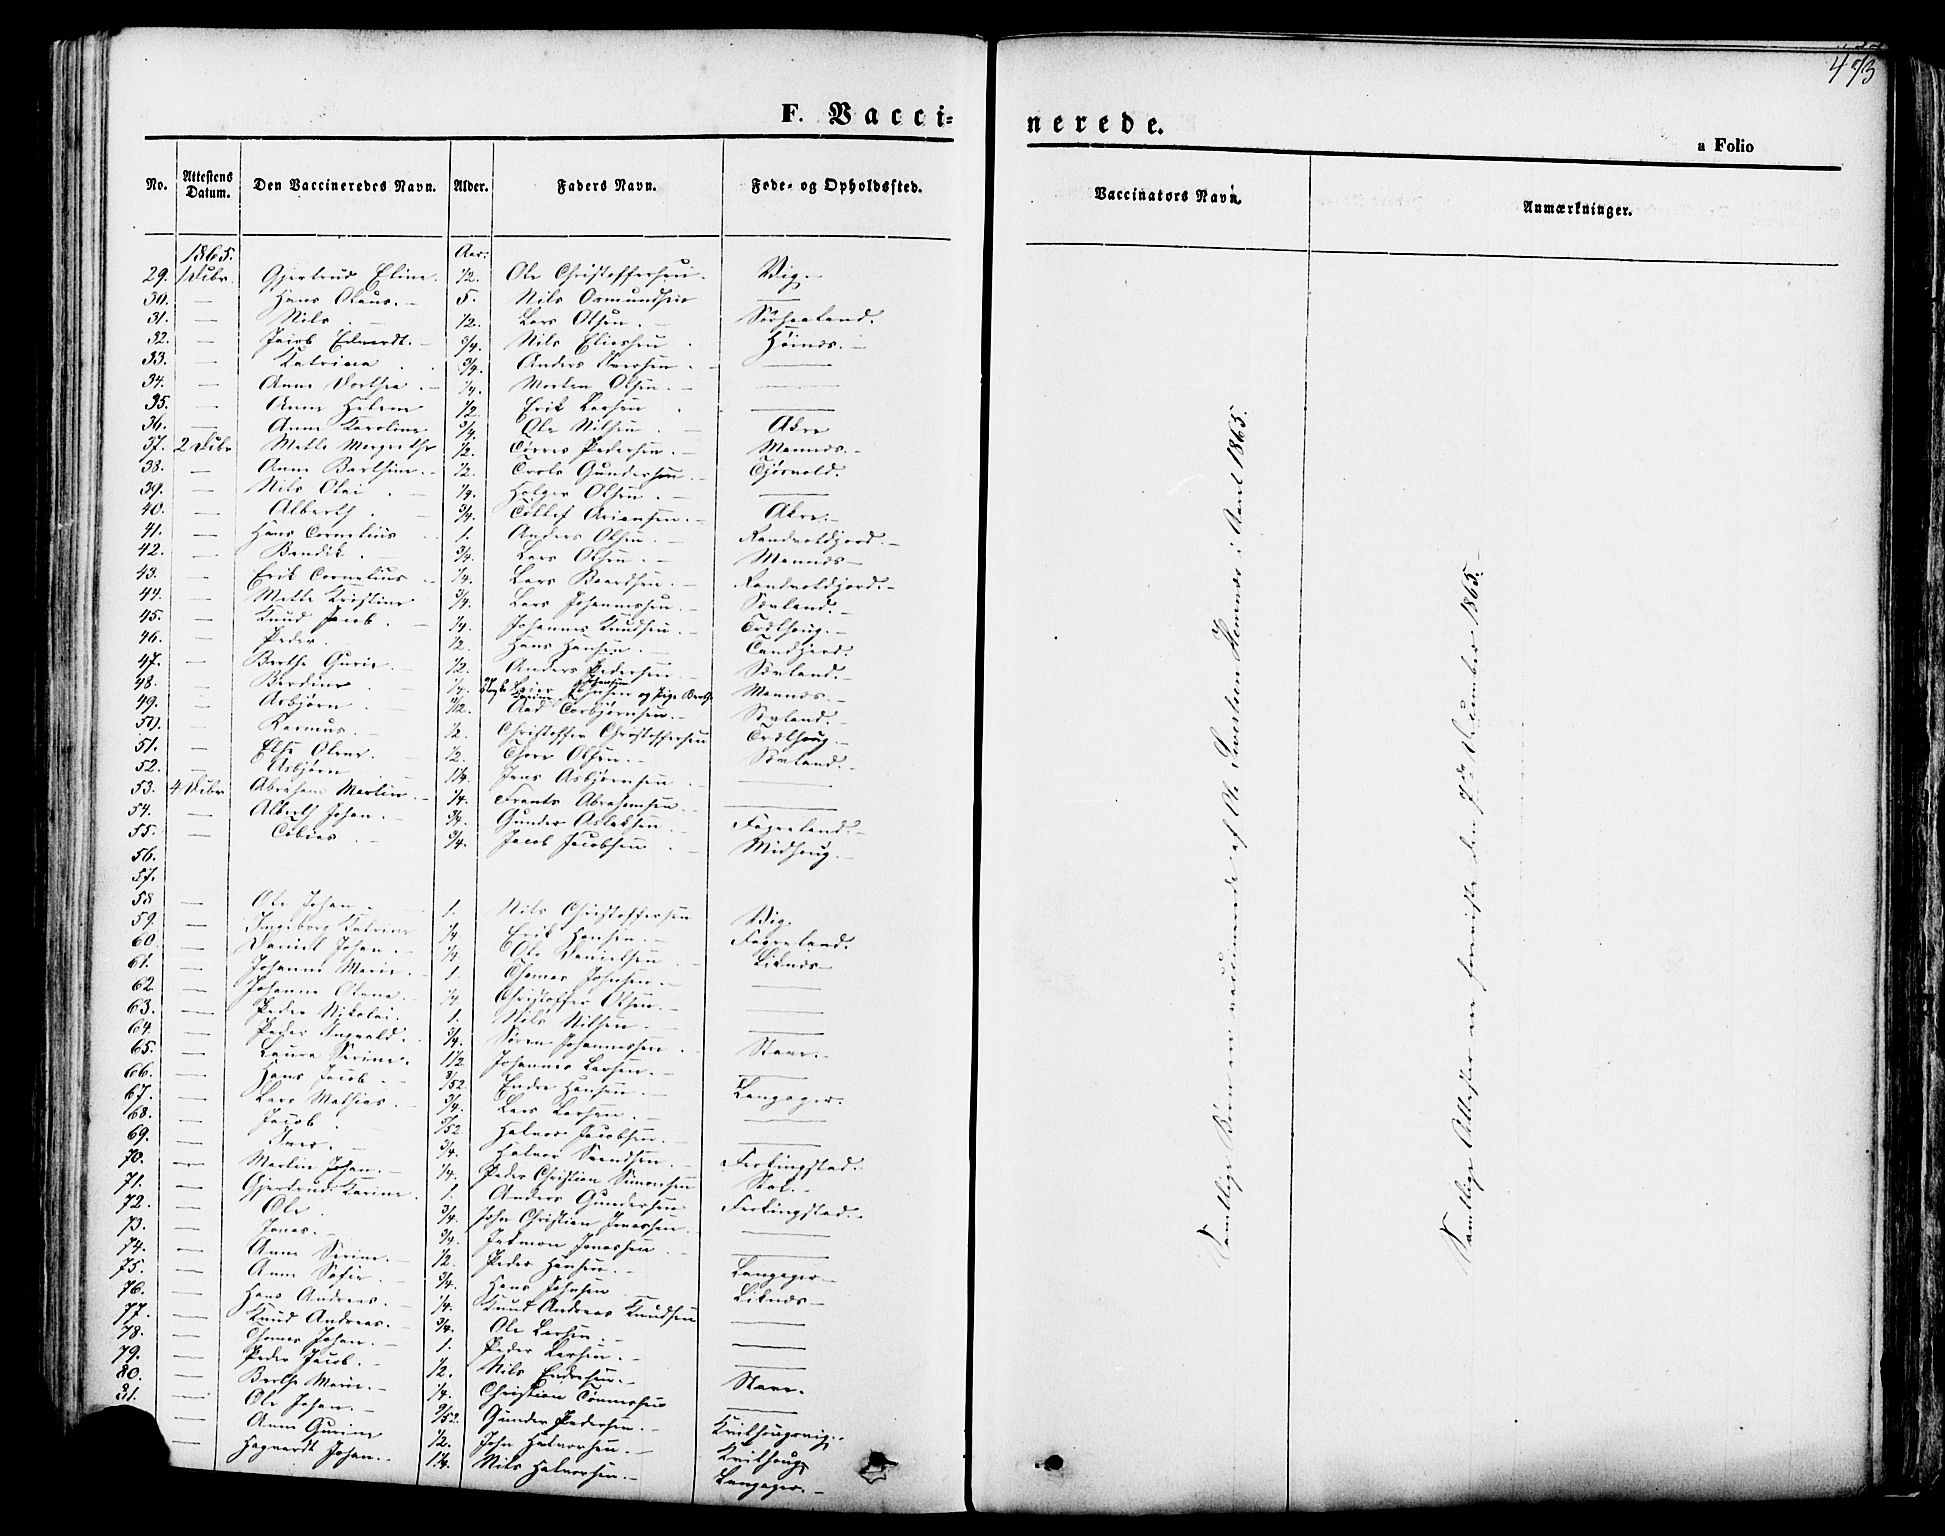 473
F. Vacci=
nerede.
a Folio
No. Attestens Datum. Den Vaccineredes Navn. Alder. Faders Navn. Føde- og Opholdssted.
Vaccinators Navn. Anmærkninger.
1865. Aar.
29. 1 Decbr. Gjertrud Eline. 1/2. Ole Christoffersen. Vig.
30. — Hans Olaus. 5. Nils Osmundsen —
31. — Nils. 1/2. Lars Olsen.
32. — Jacob Edvardt. 3/4. Nils Eliassen. Høines.
33. — Katrina 3/4. Anders Iversen. —
34. — Anne Dorthea. 1/4. Morten Olsen. —
35. — Anne Helene 1/2. Erik Larsen —
36. — Anne Karoline 3/4. Ole Nilsen. Akre
37. 2 Decbr Mette Margrethe 1/2. Tørres Pedersen. Mannes.
38. — Anne Barthine. 1/2. Trols Gundersen. Tjøsvold.
39. — Nils Olai. 1/4. Holger Olsen. —
40. — Alberth. 3/4. Tollef Ariansen. Akre.
41. — Hans Cornelius 1. Anders Olsen.
42. — Bendik. 3/4. Lars Olsen. Mannes
43. — Erik Cornelius 1/4. Lars Baardsen.
44. — Mette Kristine 3/4. Lars Johannessen. Sævland.
45. — Knud Jacob. 1/4. Johannes Knudsen.
46. — Peder. 1/2. Hans Hansen.
47. — Berthe Gurie. 1/2. Anders Pedersen Sævland.
48. — Berdine. 1/4. og Pige Berthe Mannes.
49. — Asbjørn. Aad Torbjørnsen. Sævland.
50. — Rasmus. 1/2. Christoffer Christoffersen
51. — Else Olene. 1/2. Thore Olsen. Sævland.
52. — Asbjørn 1 1/4. Jens Asbjørnsen —
53. 4 Decbr Abraham Martin. 1/4. Frants Abrahamsen. —
54. — Alberth Johan. 3/4. Gunder Asladsen. Fagerland.
55. — Tobias. 3/4. Jacob Jacobsen Midhoug.
56.
57.
58 — Ole Johan. 1. Nils Christoffersen Vig.
59. — Ingeborg Katrine 1/4. Erik Hansen. Fagerland.
60. — Daniel Johan. 1/4 Ole Danielsen Liknes
61. — Johanne Marie. 1. Thomas Johnsen. —
62. — Johanne Olena. 1/4. Christoffer Olsen. —
63. — Peder Nikolai. 1. Nils Nilsen. —
64. — Peder Ingvald. 3/4. Søren Johannessen Stave.
65. — Laura Serine. 1 1/2 Johannes Larsen. —
66. — Hans Jacob. 3/52. Endre Hansen. Langager.
67. — Lars Mathias. 3/4. Lars Larsen. —
68. — Jacob. 5/52 Halvor Jacobsen. —
69. — Iver. 3/4. Halvor Svendsen. Ferkingstad.
70. — Martin Johan. 1/4. Peder Christian Simonsen Stol.
71. — Gjertrud Karine. 1. Anders Gundersen Ferkingstad.
72. — Ole. 3/4. John Christian Jonassen. —
73. — Jonas. 3/4. Jonassen —
74. — Anne Serine. 1/2. Peder Hansen. Langager
75. — Anne Sofie. 3/4. Hans Johnsen Liknes
76. — Hans Andreas. 1/4. Knut Andreas Knudsen —
77. — Knud Andreas. 3/4. Ole Larsen. —
78. — Thomas Johan. 1. Peder Larsen. —
79. — Peder Jacob. 1/2. Nils Endresen. Stave.
80. — Berthe Marie. 1/4. Christian Tønnessen —
81. — Ole Johan. 9/52. Gunder Pedersen. Kvilhaugsvig.
— Anne Gurine 1/2. John Halvorsen. Kvilhaug
— Hagvardt Johan. 1 1/4. Nils Halvorsen. Langager.
Samtlige Børn ere vaccinerede af Ole Sivertsen Stemnæs i Aaret 1865.
Samtlige Attester ere foreviste den 7de December 1865.